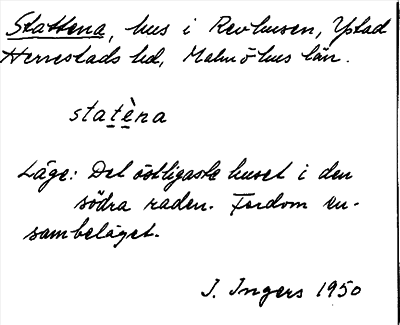 Stattena, hus i Revhusen, Ystad
Herrestads hd, Malmöhus län.
statèna
Läge: Det östligaste huset i den
södra raden. Fordom en-
sambeläget.
J. Ingers 1950